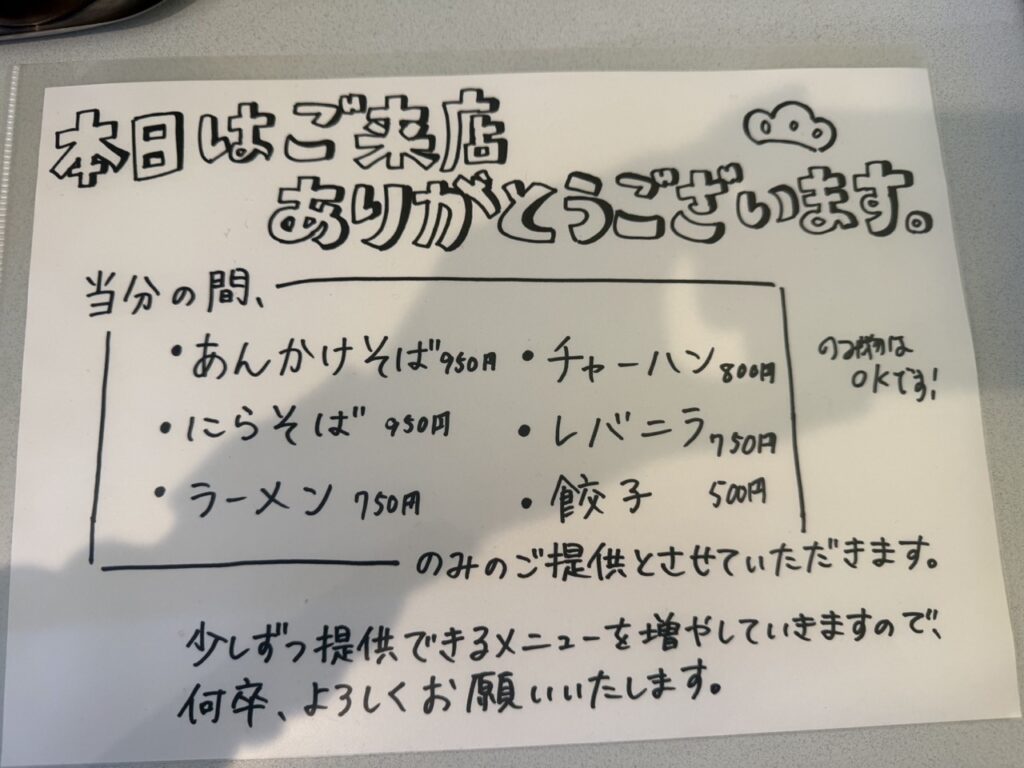 本日はご来店
ありがとうございます。
当分の間、
・あんかけそば 950円 ・チャーハン 800円
・にらそば 950円 ・レバニラ 750円
・ラーメン 750円 ・餃子 500円
のみ物は
OKです!
のみのご提供とさせていただきます。
少しずつ提供できるメニューを増やしていきますので、
何卒、よろしくお願いいたします。